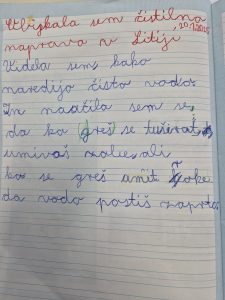 Obiskala sem čistilno
naprava v Litiji 20.1.2025
Videla sem, kako
naredijo čisto vodo.
In naučila sem se,
da ko greš se tuširat,
umivaš zobe, ali
ko se greš umit roke
da vodo pustiš zaprto.